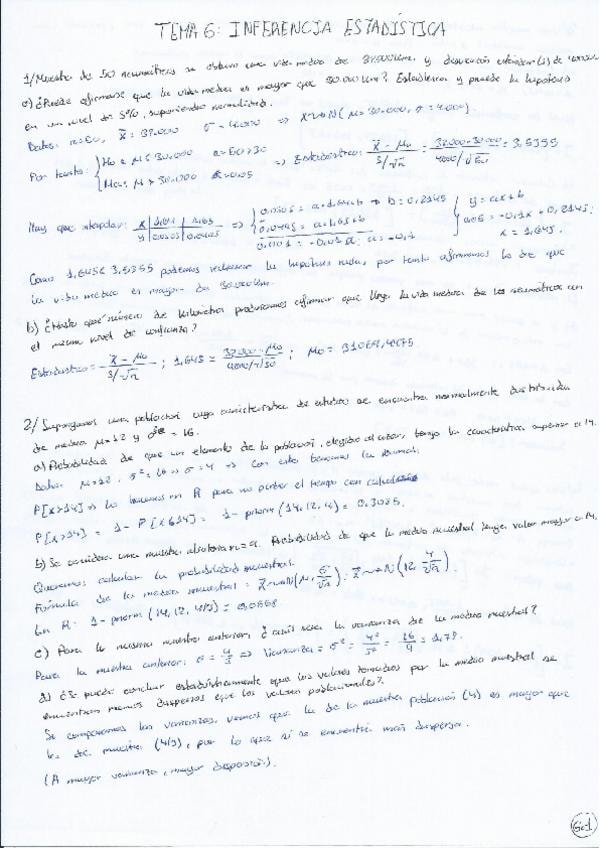 TEMA 6: INFERENCIA ESTADÍSTICA
1/ Muestra de 50 neumáticos se obtuvo una vida media de 32.000 km y desviación estándar (s) de 4000 km
a) ¿Puede afirmarse que la vida media es mayor que 30.000 km? Establezca y pruebe la hipótesis
en un nivel de 5%, suponiendo normalidad.
Datos: n=50, x̄ = 32.000 σ = 4.000 ⇒ X→N(μ=30.000, σ=4.000)
Por tanto: { H₀ = μ ≤ 30.000 n=50>30
H₁ = μ > 30.000 α=0.05 ⇒ Estadístico = (x̄ - μ₀)/(s/√n) = (32.000-30.000)/(4000/√50) = 3,5355
Hay que interpolar: x | 1.64 | 1.65
y | 0.0505 | 0.0495 ⇒ { 0,0505 = a·1.64+b ⇒ b = 0,2145
0,0495 = a·1.65+b
0,001 = -0,01a; a = -0,1 { y = ax+b
0.05 = -0,1x + 0,2145;
x = 1,645.
Como 1,645 < 3,5355 podemos rechazar la hipótesis nula, por tanto afirmamos lo de que
la vida media es mayor de 30.000 km.
b) ¿Hasta qué número de kilómetros podríamos afirmar que llega la vida media de los neumáticos con
el mismo nivel de confianza?
Estadístico = (x̄ - μ₀)/(s/√n); 1,645 = (32.000 - μ₀)/(4000/√50); μ₀ = 31069,4675
2/ Supongamos una población cuya característica de estudio se encuentra normalmente distribuida
de media μ=12 y σ² = 16.
a) Probabilidad de que un elemento de la población, elegido al azar, tenga la característica superior a 14.
Datos: μ=12, σ²=16 ⇒ σ=4 ⇒ Con esto tenemos la normal.
P[X>14] ⇒ Lo hacemos en R para no perder el tiempo con
P[X>14] = 1 - P[X≤14] = 1 - pnorm(14,12,4) = 0.3085.
b) Se considera una muestra aleatoria n=9. Probabilidad de que la media muestral tenga valor mayor a 14.
Queremos calcular la probabilidad muestral.
Fórmula de la media muestral = X̄→N(μ, σ/√n); X̄→N(12, 4/√9)
En R: 1 - pnorm(14,12,4/3) = 0,0668
c) Para la misma muestra anterior, ¿cuál sería la varianza de la media muestral?
Para la muestra anterior: σ = 4/3 ⇒ Varianza = σ² = 4²/3² = 16/9 = 1,78.
d) ¿Se puede concluir estadísticamente que los valores tomados por la media muestral se
encuentran menos dispersos que los valores poblacionales?
Se comparamos las varianzas, vemos que la de la muestra población (4) es mayor que
la de muestra (4/3), por lo que sí se encuentra más dispersa.
(A mayor varianza, mayor dispersión).
6.1